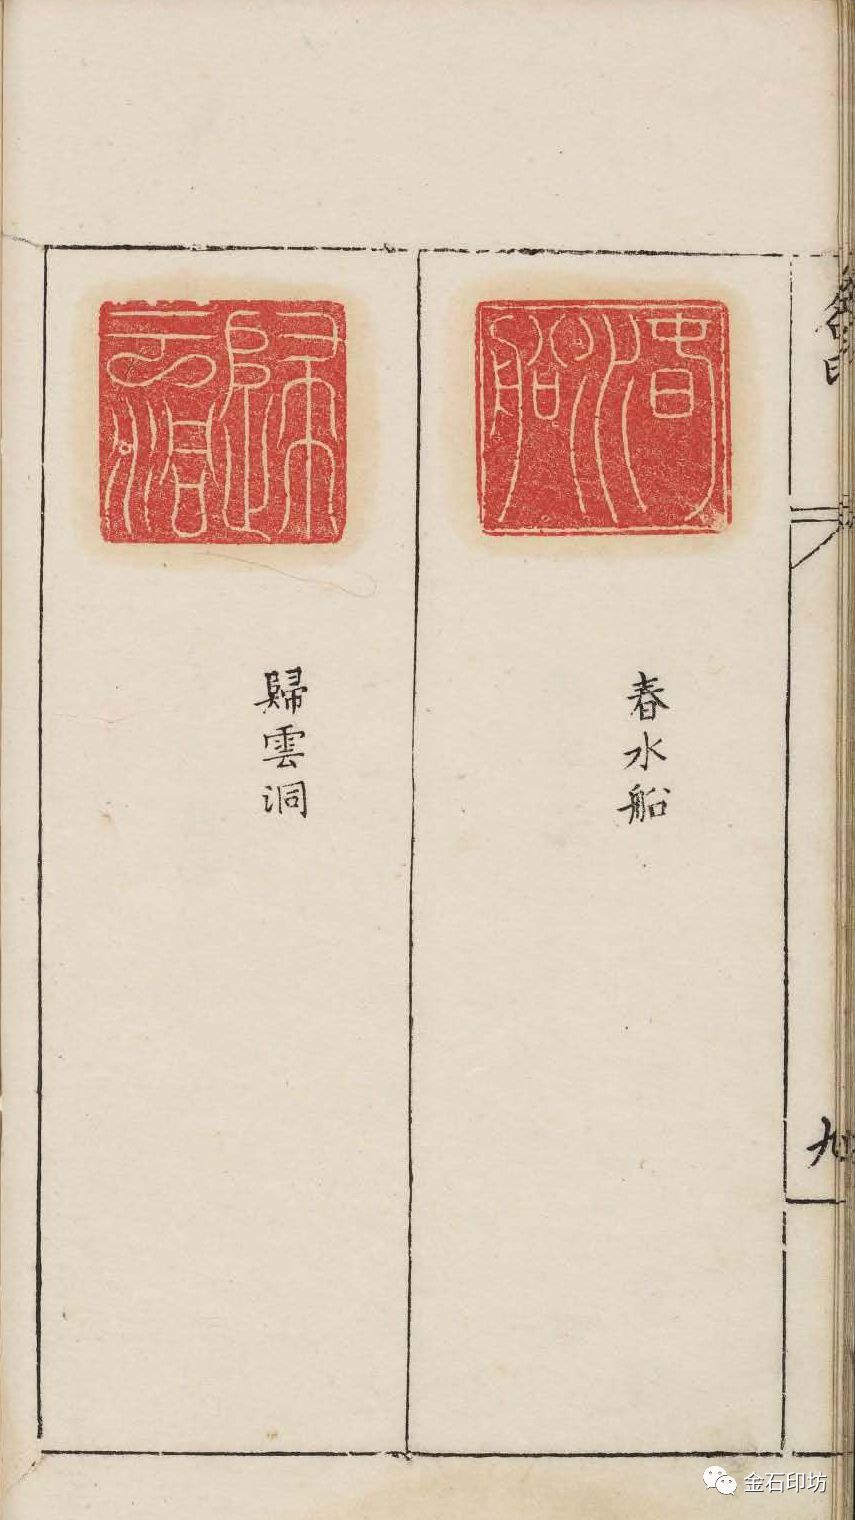 春水船
歸雲洞
九
金石印坊